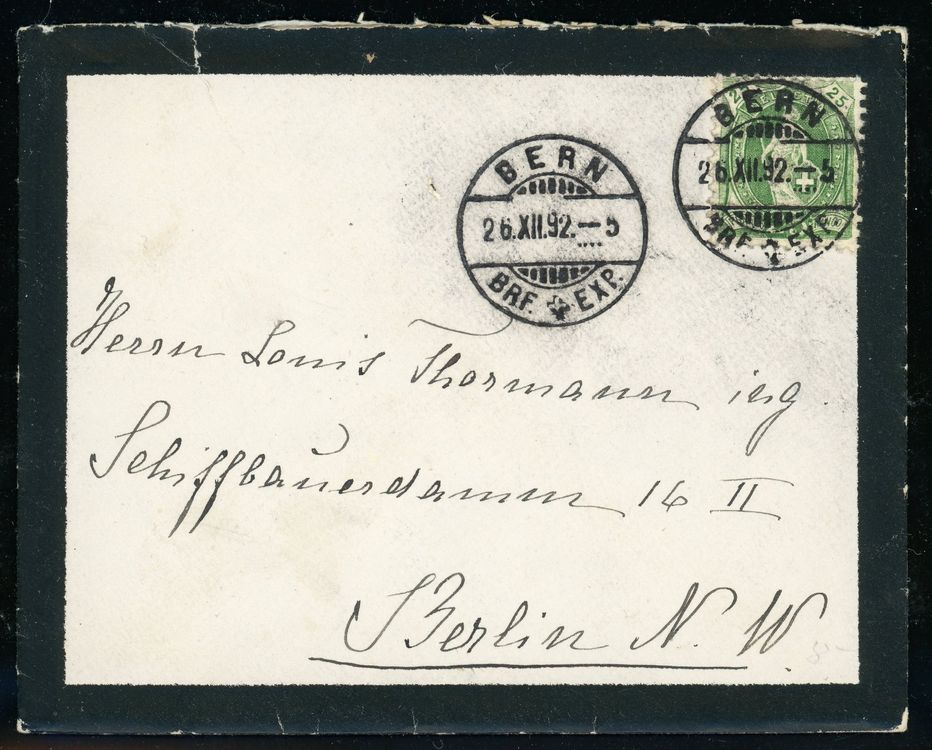 BERN
26.XII.92.—5
BRF. EXP.
25 25
BERN
26.XII.92.—5
BRF. EXP.
Herrn Louis Thormann ing.
Schiffbauerdamm 16 II
Berlin N. W.